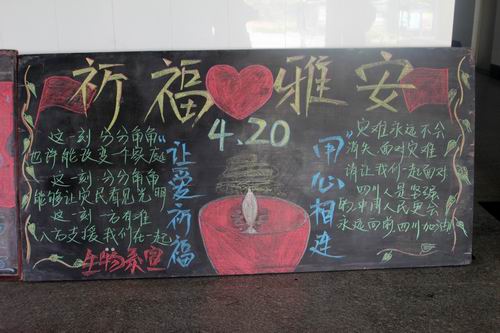 祈福❤雅安
4.20
这一刻 分分角角
也许能改变一个家庭
这一刻 分分角角
能够让灾民看见光明
这一刻 一方有难
八方支援 我们在一起
"让爱祈福
用心相连"
灾难永远不会
消失 面对灾难
请让我们一起面对
四川人是坚强
的 中国人民更会
永远向前 四川加油